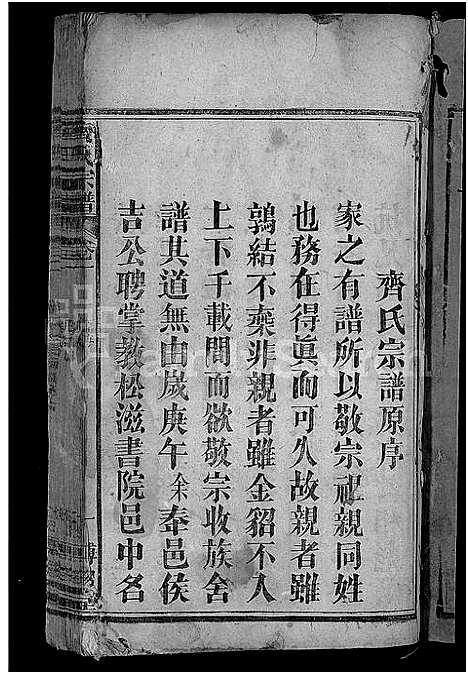 齊氏宗譜原序
家之有譜所以敬宗祀親同姓
也務在得眞而可久故親者雖
鶉結不棄非親者雖金貂不入
上下千載間而欲敬宗收族舍
譜其道無由歲庚午余奉邑侯
吉公聘掌教松滋書院邑中名
氏宗譜
卷
一